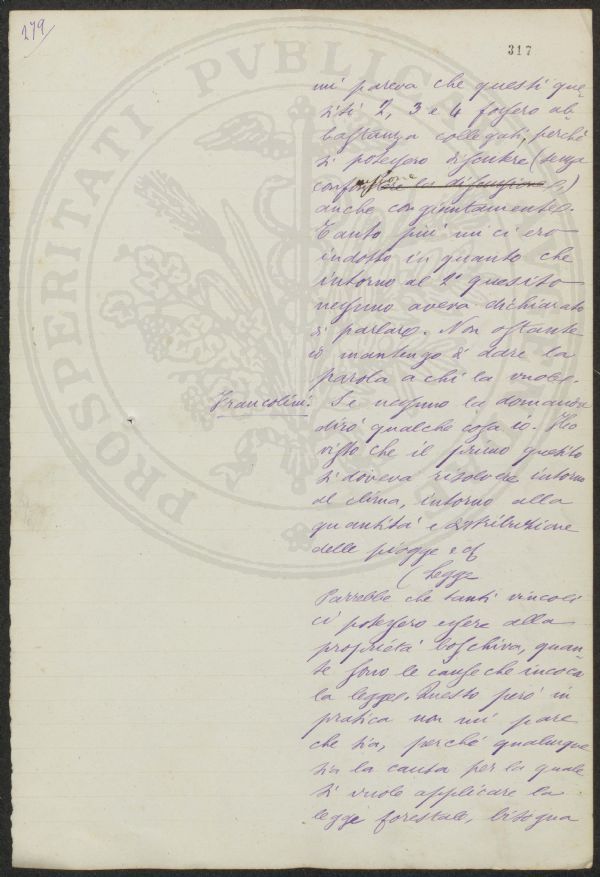 279
317
mi pareva che questi que
siti 2, 3 e 4 fossero ab
bastanza collegati, perchè
si potessero discutere (senza
confusione)
anche congiuntamente.
Tanto più mi ci ero
indotto in quanto che
intorno al 2° quesito
nessuno aveva dichiarato
di parlare. Non ostante
io mantengo di dare la
parola a chi la vuole.
Francolini. Se nessuno la domanda
dirò qualche cosa io. Ho
visto che il primo quesito
si doveva risolvere intorno
al clima, intorno alla
quantità e distribuzione
delle piogge ec
(legge
Parrebbe che tanti vincoli
ci potessero essere alla
proprietà boschiva, quan
te sono le cause che invoca
la legge. Questo però in
pratica non mi pare
che sia, perchè qualunque
sia la causa per la quale
si vuole applicare la
legge forestale, bisogna
PROSPERITATI PVBLICAE